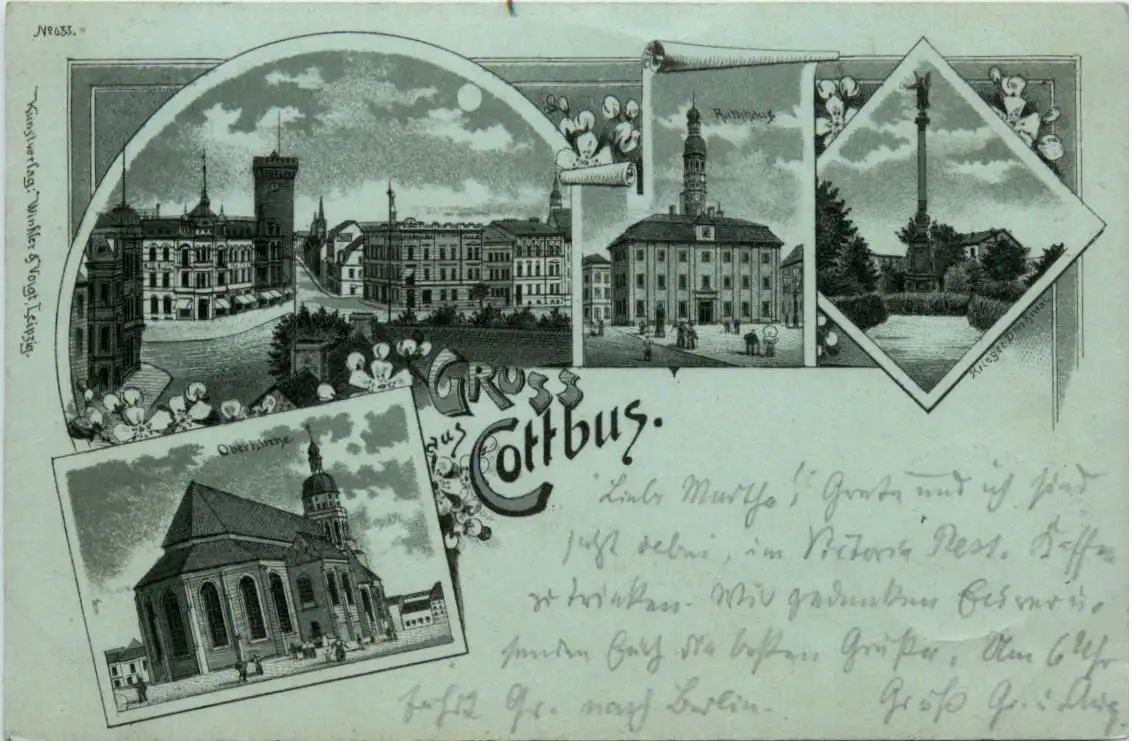 No 633.
Kunstverlag: Winkler & Voigt, Leipzig.
Rathhaus
Kriegerdenkmal
Oberkirche
Gruss
aus
Cottbus.
Liebe Martha! Grete und ich sind
jetzt dabei, im Victoria Rest. Kaffee
zu trinken. Wir gedenken Euer u.
senden Euch die besten Grüße. Um 6 Uhr
fährt Gr. nach Berlin.
Gruß Gr. u